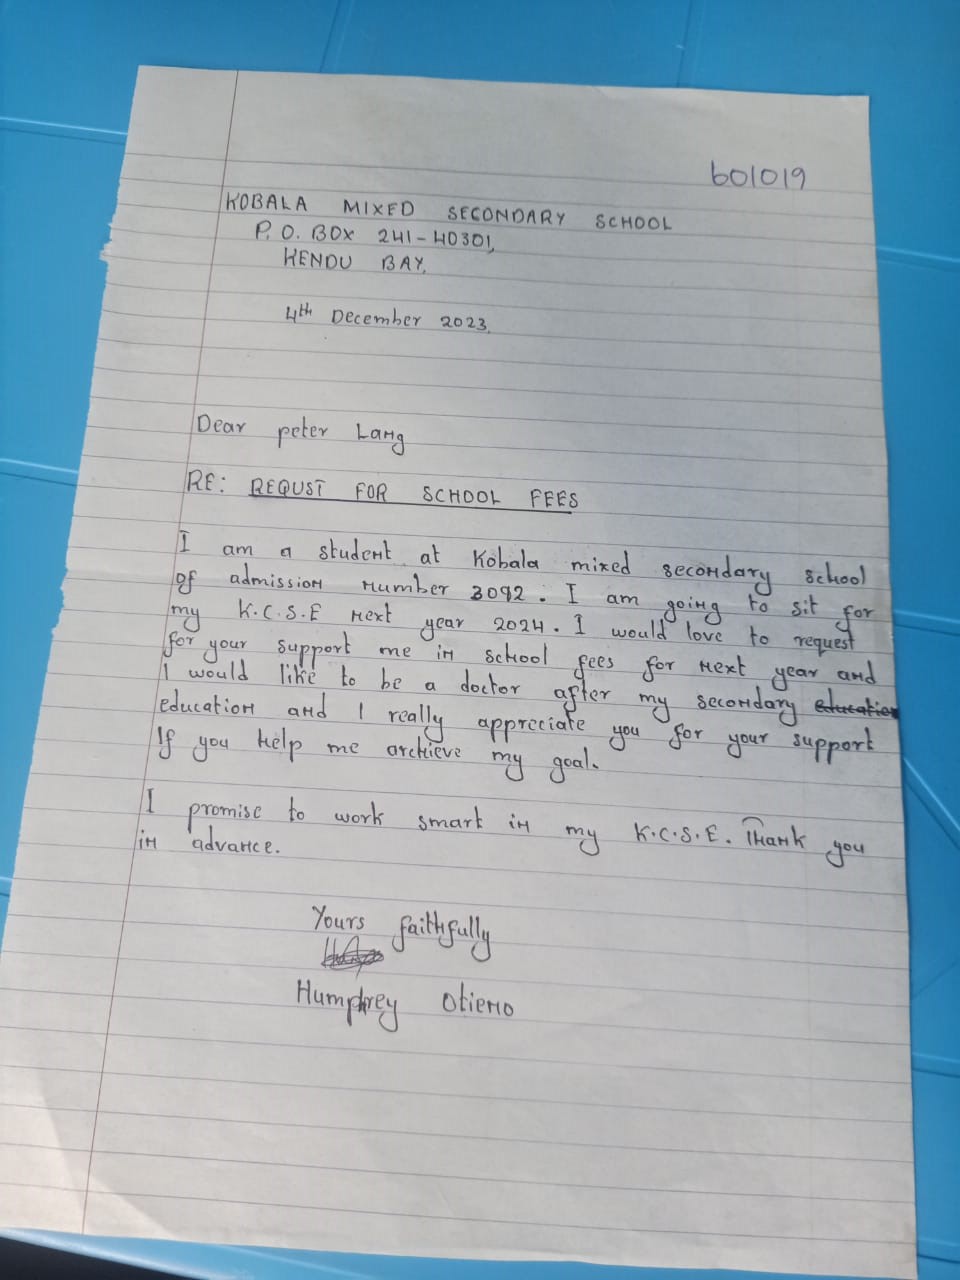 601019
KOBALA MIXED SECONDARY SCHOOL
P.O. BOX 241-40301,
KENDU BAY.
4th December 2023.
Dear peter Lang
RE: REQUST FOR SCHOOL FEES
I am a student at Kobala mixed secondary school
of admission number 3092. I am going to sit for
my K.C.S.E next year 2024. I would love to request
for your support me in school fees for next year and
I would like to be a doctor after my secondary education
education and I really appreciate you for your support
If you help me archieve my goal.
I promise to work smart in my K.C.S.E. Thank you
in advance.
Yours faithfully
Humphrey Otieno